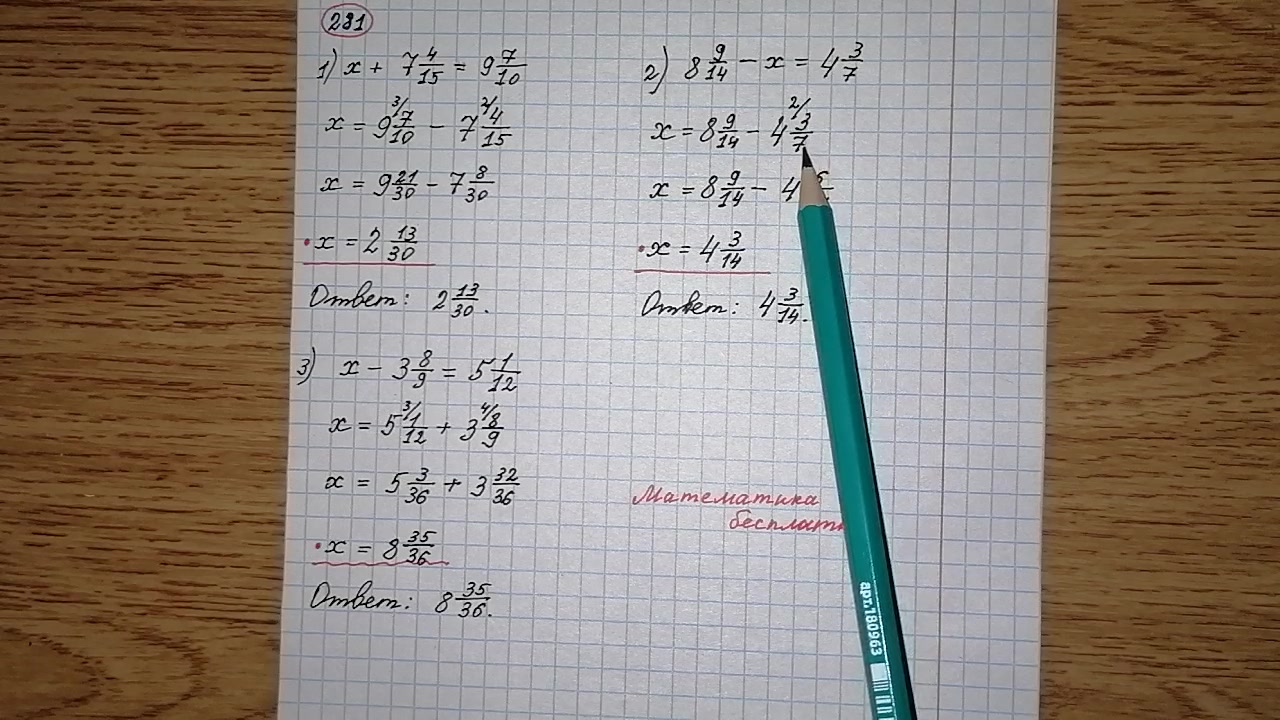 281
1) x + 7 4/15 = 9 7/10
x = 9 3/ 7/10 − 7 2/ 4/15
x = 9 21/30 − 7 8/30
x = 2 13/30
Ответ: 2 13/30.
2) 8 9/14 − x = 4 3/7
x = 8 9/14 − 4 2/ 3/7
x = 8 9/14 − 4
x = 4 3/14
Ответ: 4 3/14.
3) x − 3 8/9 = 5 1/12
x = 5 3/ 1/12 + 3 4/ 8/9
x = 5 3/36 + 3 32/36
x = 8 35/36
Ответ: 8 35/36.
Математика
арт.180963